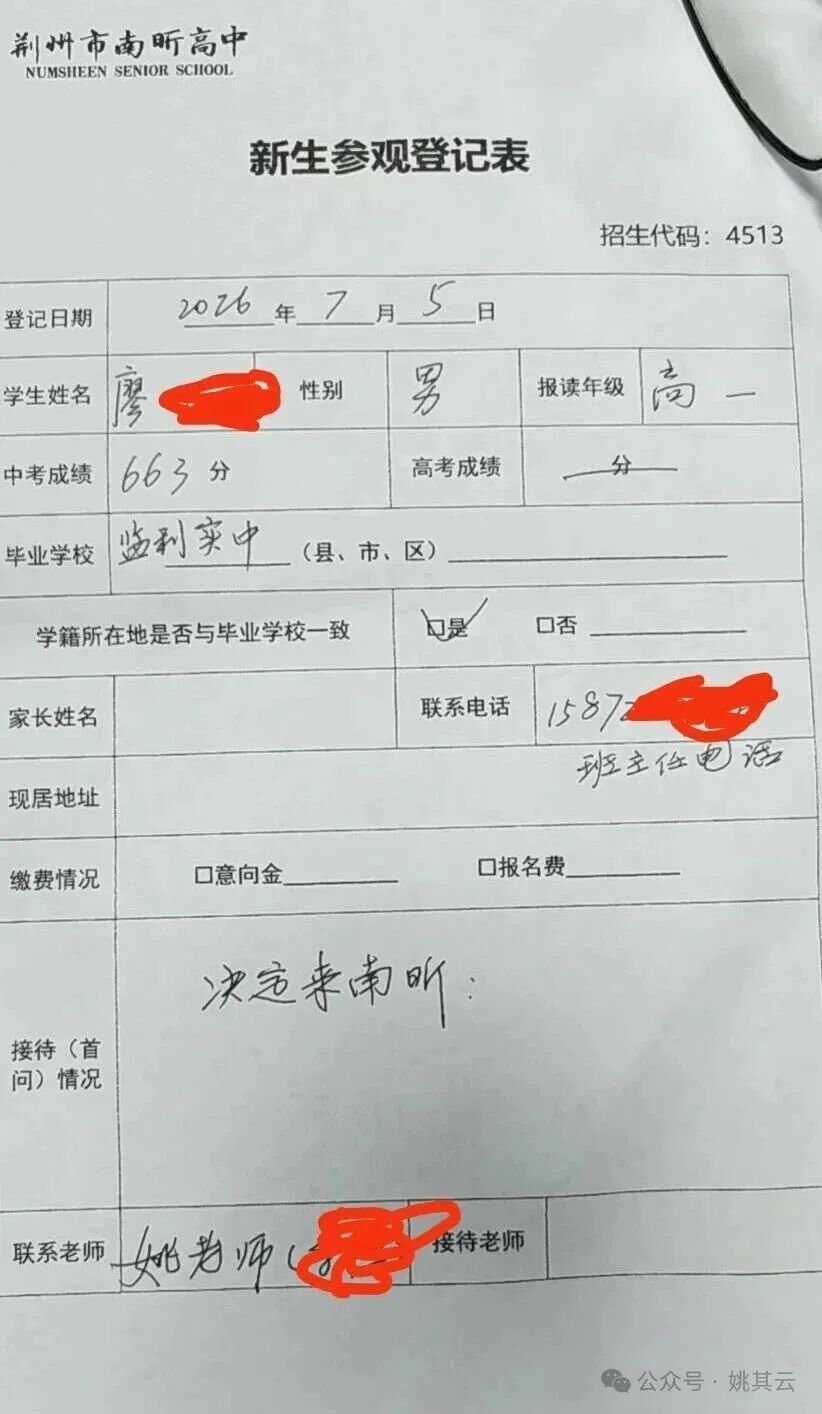 荆州市南昕高中
NUMSHEEN SENIOR SCHOOL
新生参观登记表
招生代码：4513
登记日期 2026 年 7 月 5 日
学生姓名 廖 性别 男 报读年级 高一
中考成绩 663 分 高考成绩 分
毕业学校 监利实中 （县、市、区）
学籍所在地是否与毕业学校一致 是 否
家长姓名 联系电话 1587
班主任电话
现居地址
缴费情况 意向金 报名费
决定来南昕：
接待（首
问）情况
联系老师 姚老师 接待老师
公众号 · 姚其云